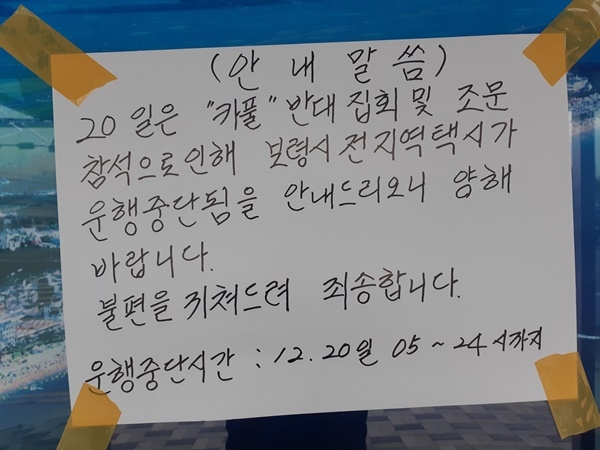 (안내말씀)
20일은 "카풀" 반대집회 및 조문
참석으로 인해 보령시 전지역 택시가
운행중단됨을 안내드리오니 양해
바랍니다.
불편을 끼쳐드려 죄송합니다.
운행중단시간 : 12. 20일 05~24시까지